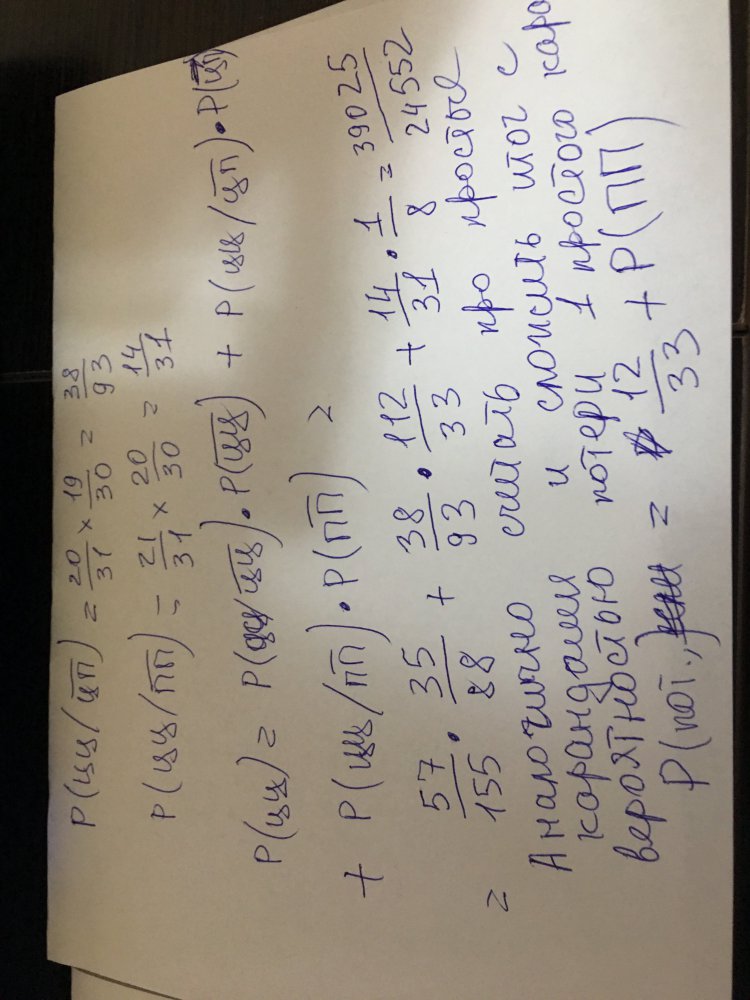 P(цц/цп) = 20/31 × 19/30 = 38/93
P(цц/пп) = 21/31 × 20/30 = 14/31
P(цц) = P(цц/цц)·P(цц) + P(цц/цп)·P(цп)
+ P(цц/пп)·P(пп) =
= 57/155 · 35/88 + 38/93 · 112/33 + 14/31 · 1/8 = 39025/24552
Аналогично считать про простые
карандаши и сложить итог с
вероятностью потери 1 простого кара
P(пот.) = 12/33 + P(ПП)